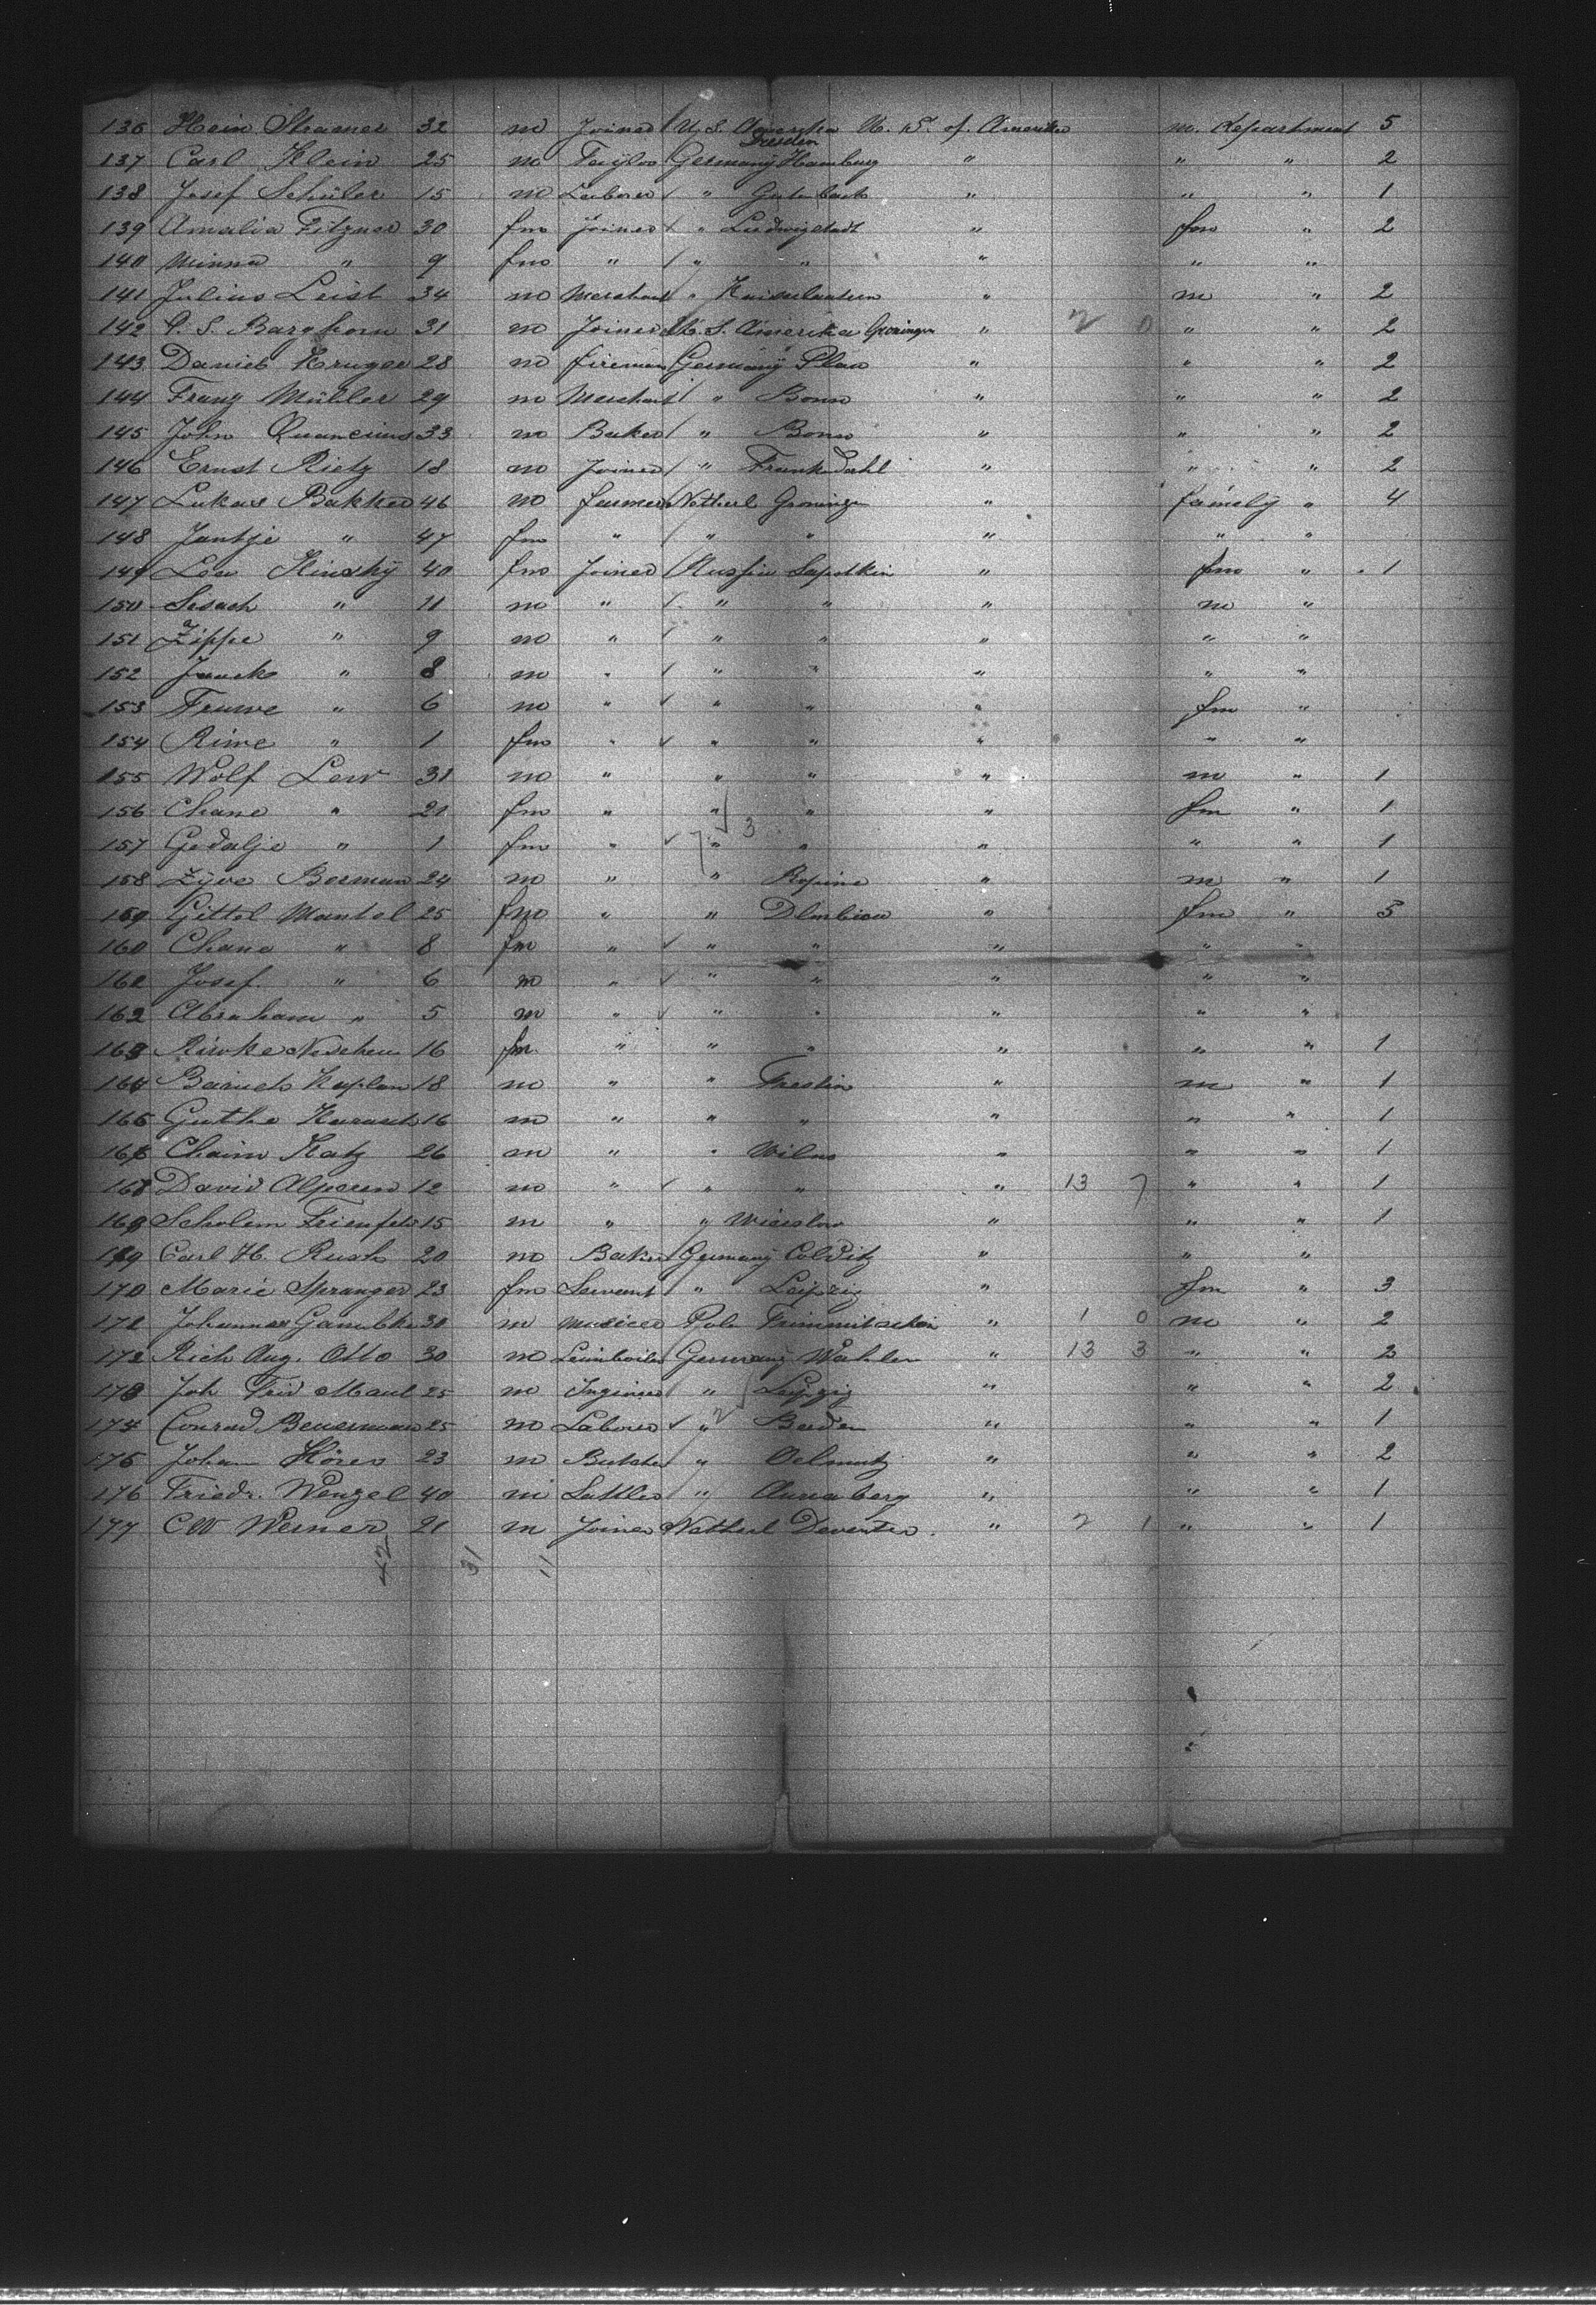 136 Hein Straaner 32 m Joiner U. S. Amerika Dresden U. S. of Amerika m. Department 5
137 Carl Klein 25 m Taylor Germany Hamburg " " " 2
138 Josef Schüler 15 m Laborer " " " " 1
139 Amalia Fitzner 30 fm Joiner " Ludwigstadt " fm " 2
140 Minna " 9 fm " " " " " "
141 Julius Leist 34 m Merchant " Kaiserlautern " m " 2
142 S. Barghorn 31 m Joiner U. S. Amerika Groningen " 2 0 " " 2
143 Daniel Kruger 28 m fireman Germany Plau " " " 2
144 Franz Mühler 29 m Merchant " Bonn " " " 2
145 John Quancius 33 m Baker " Bonn " " " 2
146 Ernst Rietz 18 m Joiner " Frankendahl " " " 2
147 Lukas Bakker 46 m farmer Netherl Groningen " famely " 4
148 Jantje " 47 fm " " " " " "
149 Lea Kinsky 40 fm Joiner Russia Sapotkin " fm " 1
150 Sesach " 11 m " " " " m "
151 Zippe " 9 m " " " " " "
152 " 8 m " " " " " "
153 " 6 m " " " " fm "
154 Rime " 1 fm " " " " " "
155 Wolf Lew 31 m " " " " m " 1
156 Chane " 21 fm " " " " fm " 1
157 Gedalje " 1 fm " 7 3 " " " " " 1
158 Zyve Berman 24 m " " " m " 1
159 Gittel Mantel 25 fm " " " fm " 5
160 Chane " 8 fm " " " " " "
161 Josef " 6 m " " " " " "
162 Abraham " 5 m " " " " " "
163 Riwke 16 fm " " " " " " 1
164 Baruch Kaplan 18 m " " " m " 1
165 Guthe 16 m " " " " " " 1
166 Chaim Katz 26 m " " Wilna " " " 1
168 David Alperen 12 m " " " " 13 7 " " 1
169 Scholem 15 m " " " " " 1
169 Carl H. Rush 20 m Baker Germany Colditz " " "
170 Marie Spranger 23 fm Servant " Leipzig " fm " 3
172 Johannes Gambke 30 m " 1 0 m " 2
172 Rich Aug. Otto 30 m Germany Wahlen " 13 3 " " 2
173 Joh Frid Maul 25 m Ingineer " Leipzig " " " 2
174 Conrad 25 m Laborer 2 " Baden " " " 1
175 Johan 23 m Butcher " Oelsnitz " " " 2
176 Friedr. Wenzel 40 m Sattler " Annaberg " " " 1
177 CW Werner 21 m Joiner Netherl Deventer " 2 1 " " 1
42 31 11